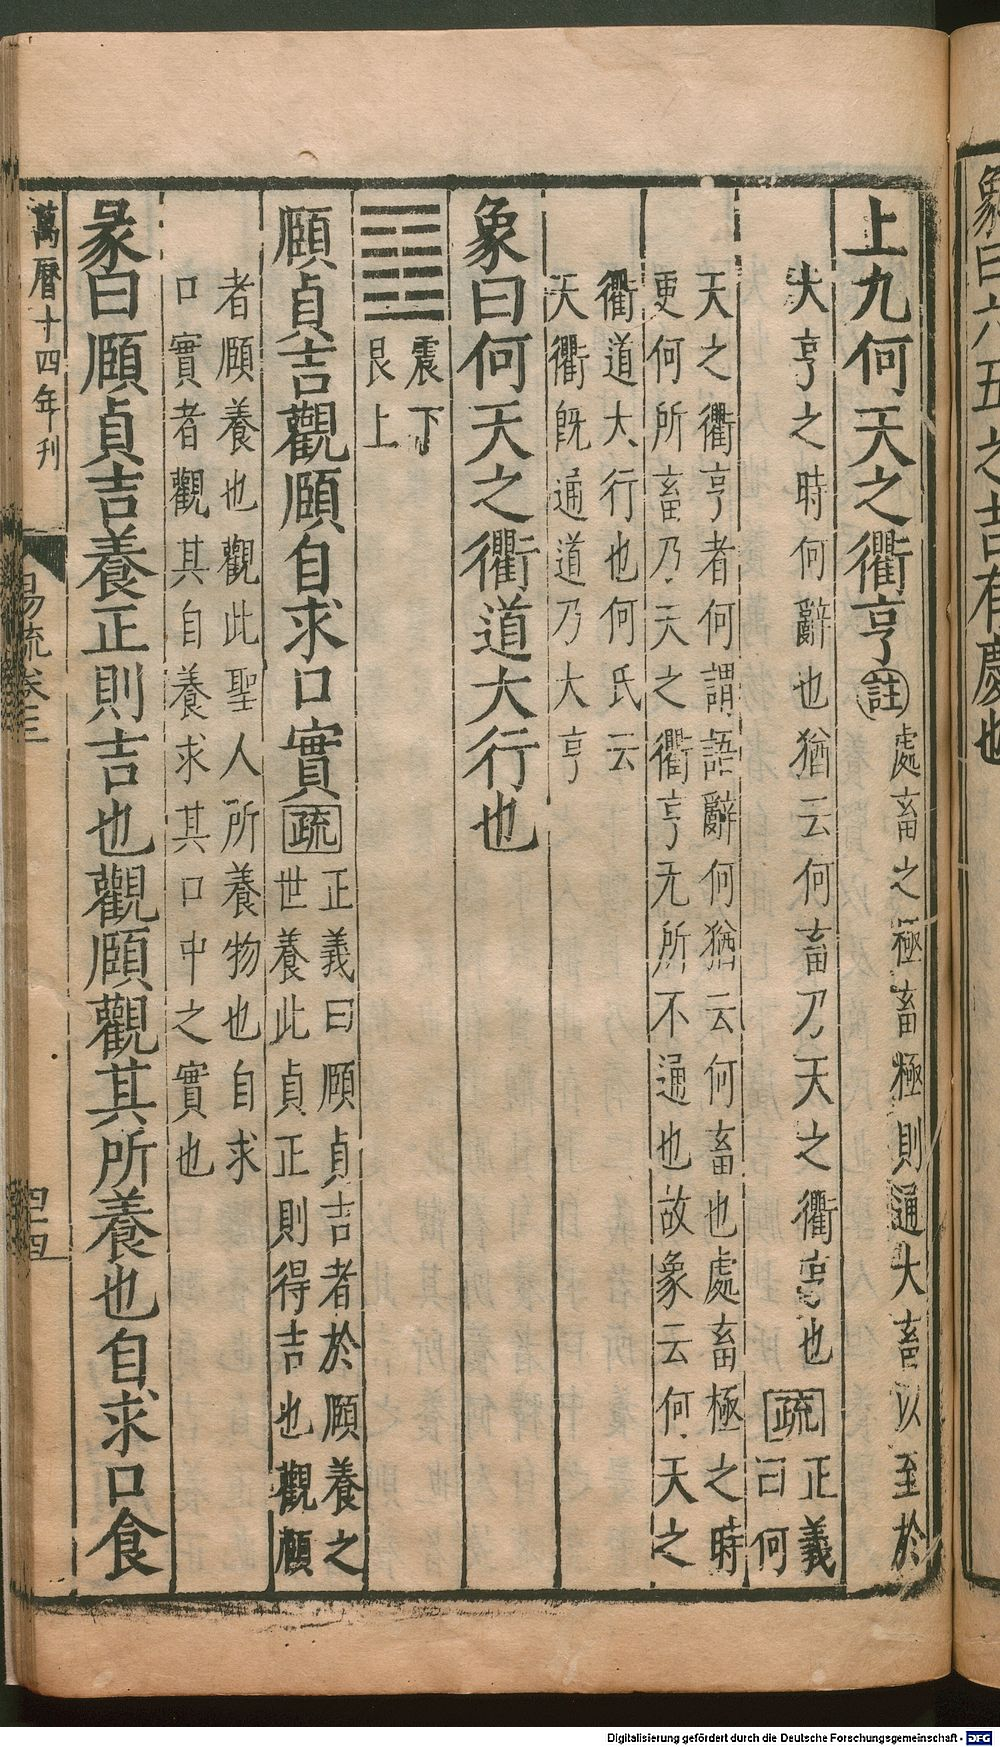 象曰六五之吉有慶也
上九何天之衢亨註處畜之極畜極則通大畜以至於
大亨之時何辭也猶云何畜乃天之衢亨也疏正義
曰何
天之衢亨者何謂語辭何猶云何畜也處畜極之時
更何所畜乃天之衢亨无所不通也故象云何天之
衢道大行也何氏云
天衢旣通道乃大亨
象曰何天之衢道大行也
震下
艮上
頤貞吉觀頤自求口實疏正義曰頤貞吉者於頤養之
世養此貞正則得吉也觀頤
者頤養也觀此聖人所養物也自求
口實者觀其自養求其口中之實也
彖曰頤貞吉養正則吉也觀頤觀其所養也自求口食
萬曆十四年刊
易疏卷三
四十四
Digitalisierung gefördert durch die Deutsche Forschungsgemeinschaft - DFG